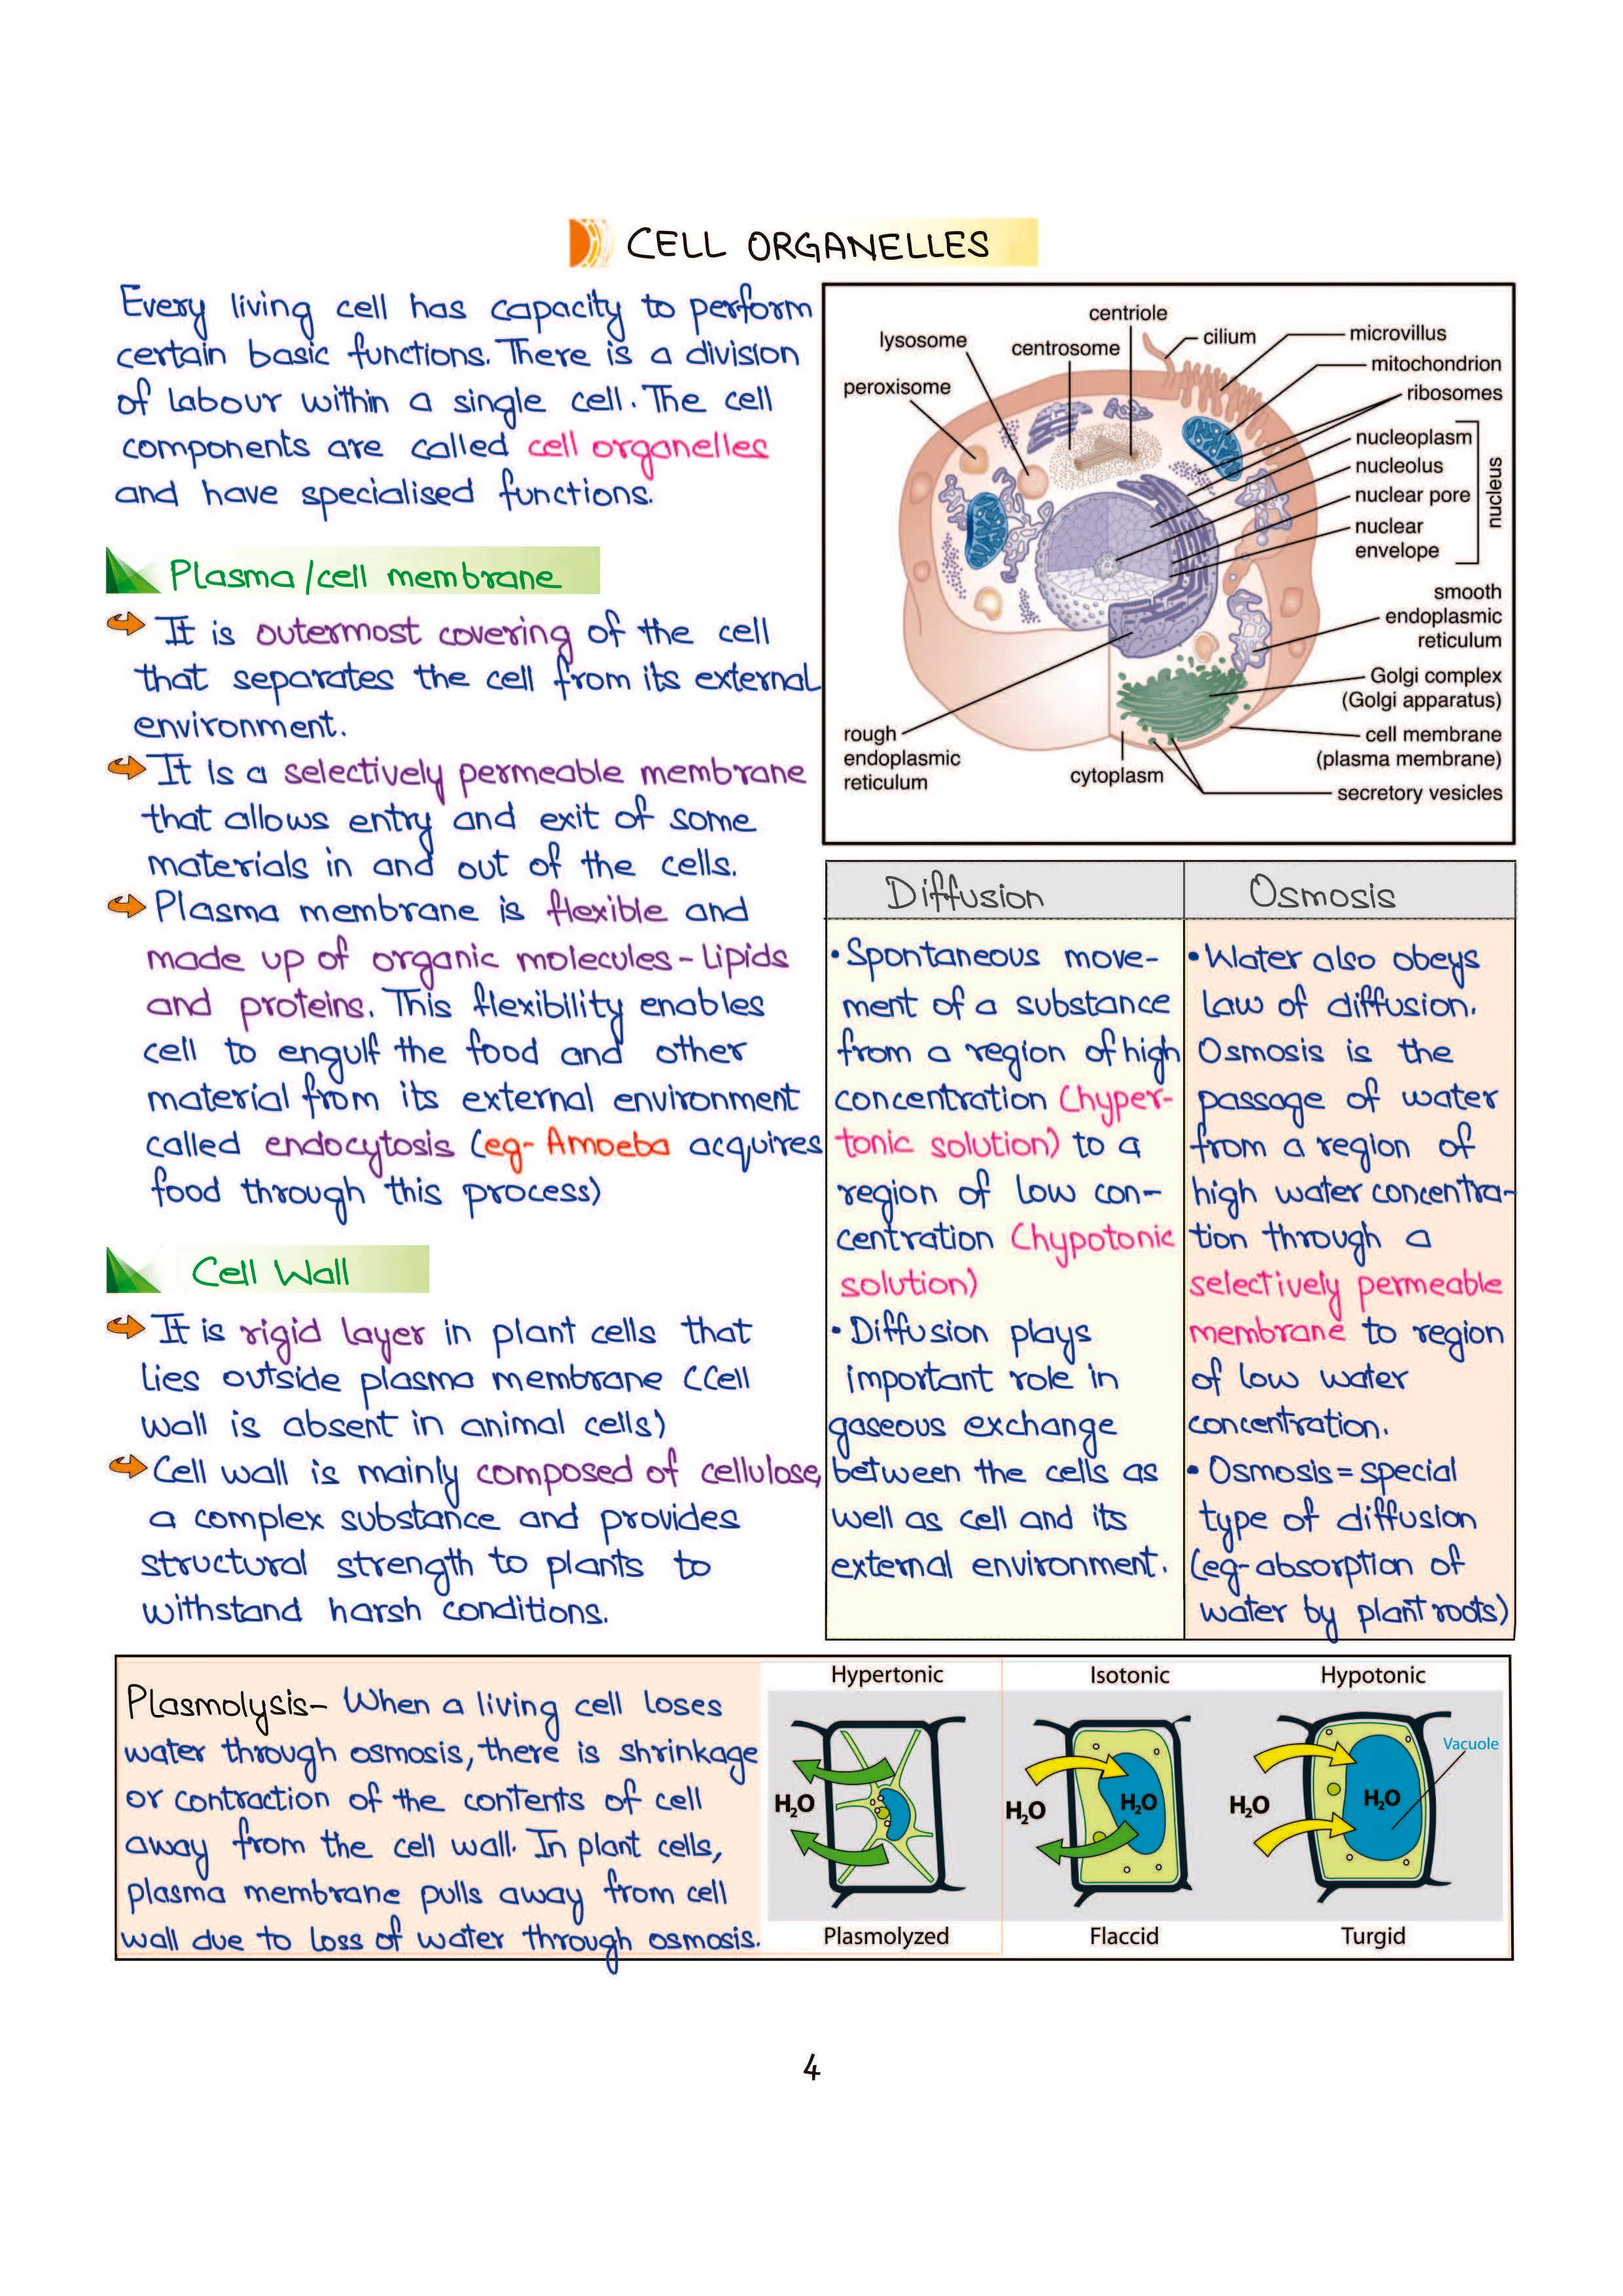 CELL ORGANELLES
Every living cell has capacity to perform
certain basic functions. There is a division
of labour within a single cell. The cell
components are called cell organelles
and have specialised functions.
Plasma/cell membrane
It is outermost covering of the cell
that separates the cell from its external
environment.
It is a selectively permeable membrane
that allows entry and exit of some
materials in and out of the cells.
Plasma membrane is flexible and
made up of organic molecules - lipids
and proteins. This flexibility enables
cell to engulf the food and other
material from its external environment
called endocytosis (eg- Amoeba acquires
food through this process)
Cell Wall
It is rigid layer in plant cells that
lies outside plasma membrane (Cell
wall is absent in animal cells)
Cell wall is mainly composed of cellulose,
a complex substance and provides
structural strength to plants to
withstand harsh conditions.
centriole
lysosome
centrosome
cilium
microvillus
mitochondrion
peroxisome
ribosomes
nucleoplasm
nucleolus
nuclear pore
nuclear
envelope
nucleus
smooth
endoplasmic
reticulum
Golgi complex
(Golgi apparatus)
rough
endoplasmic
reticulum
cell membrane
(plasma membrane)
cytoplasm
secretory vesicles
Diffusion
• Spontaneous move-
ment of a substance
from a region of high
concentration (hyper-
tonic solution) to a
region of low con-
centration (hypotonic
solution)
• Diffusion plays
important role in
gaseous exchange
between the cells as
well as cell and its
external environment.
Osmosis
• Water also obeys
law of diffusion.
Osmosis is the
passage of water
from a region of
high water concentra-
tion through a
selectively permeable
membrane to region
of low water
concentration.
• Osmosis = special
type of diffusion
(eg- absorption of
water by plant roots)
Plasmolysis- When a living cell loses
water through osmosis, there is shrinkage
or contraction of the contents of cell
away from the cell wall. In plant cells,
plasma membrane pulls away from cell
wall due to loss of water through osmosis.
Hypertonic
Isotonic
Hypotonic
Vacuole
H₂O
H₂O
H₂O
H₂O
H₂O
Plasmolyzed
Flaccid
Turgid
4